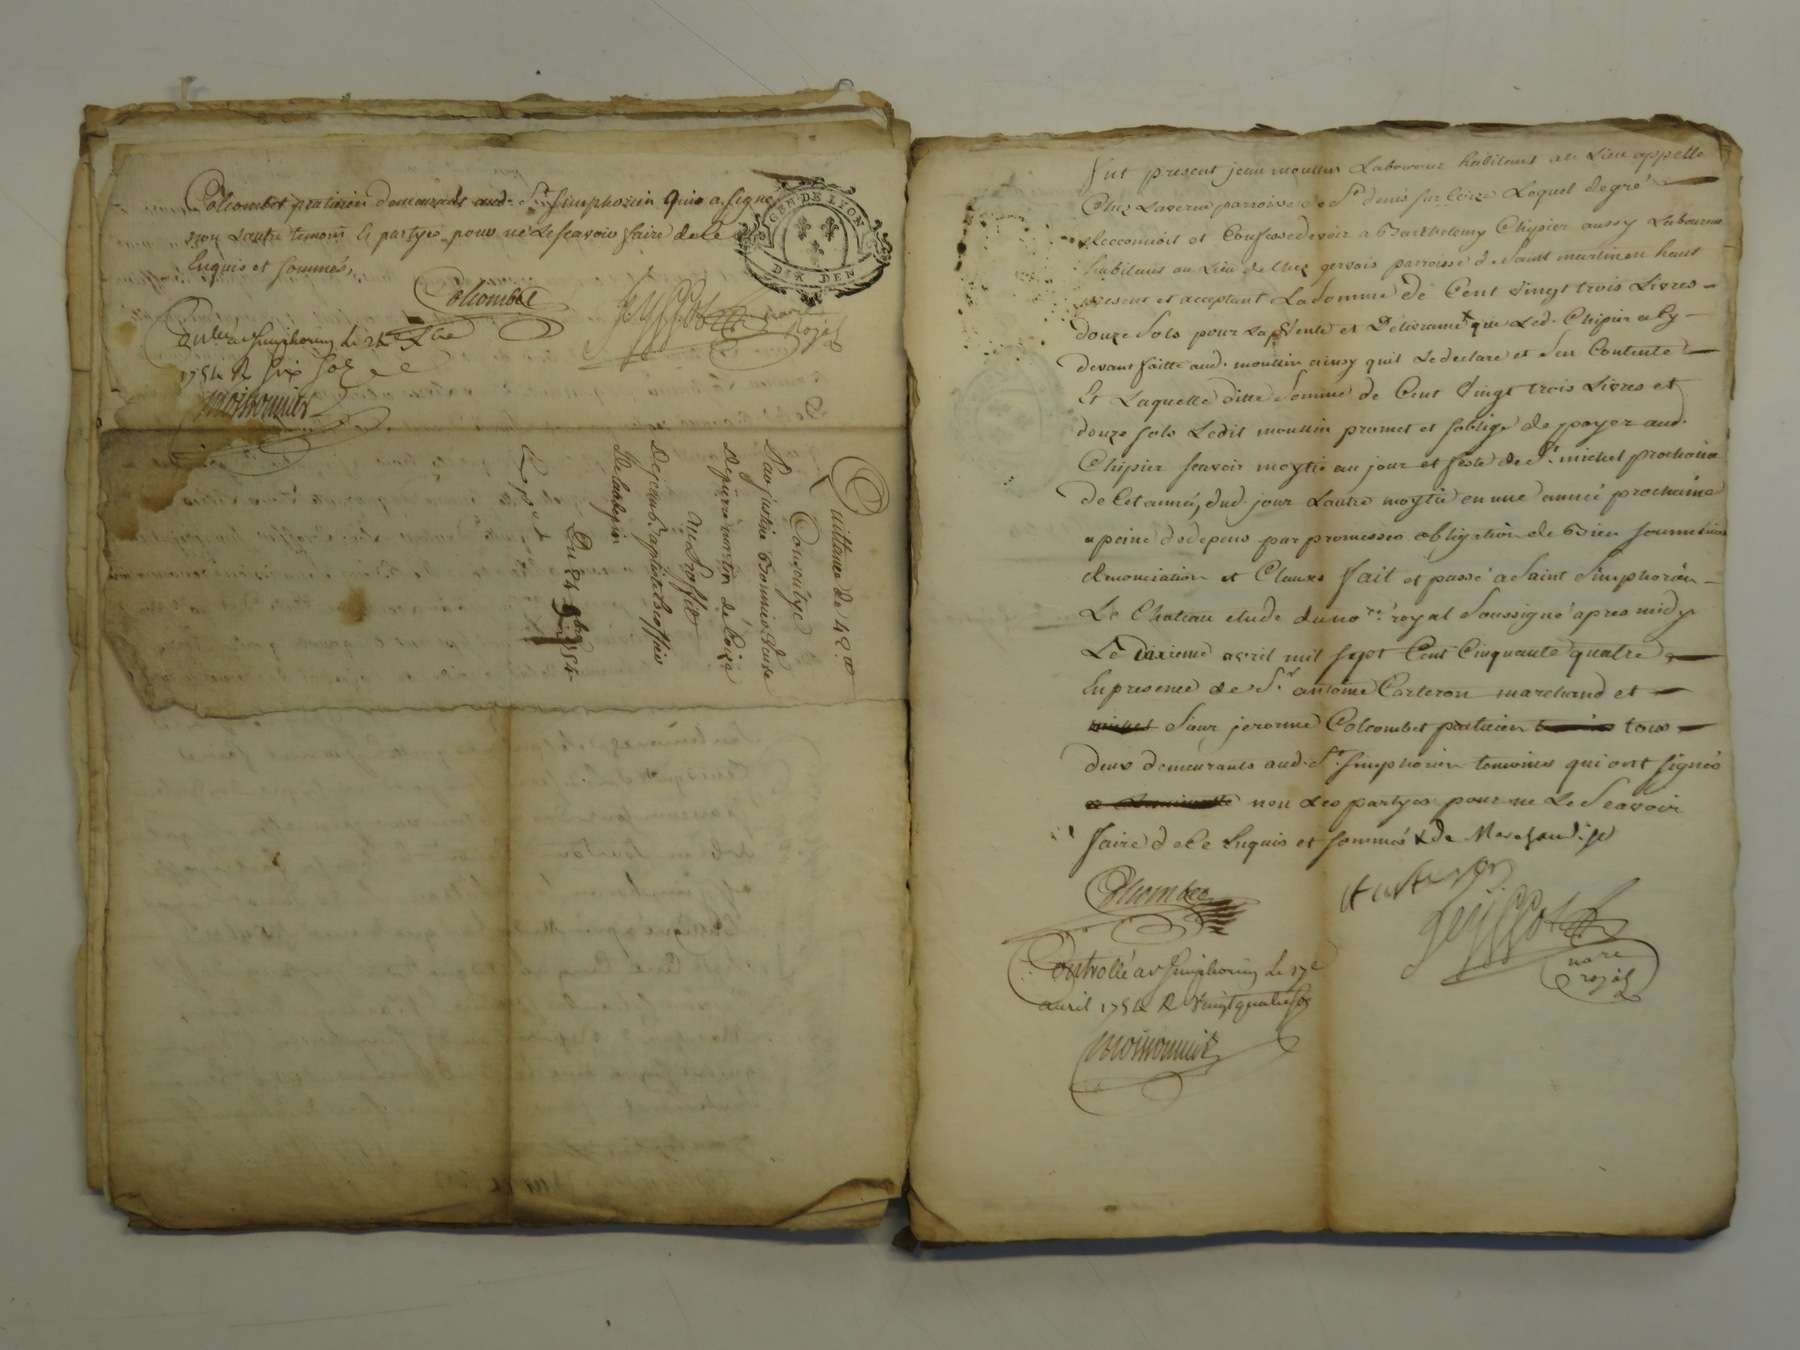 Colcombet praticien demeurants aud. St. Simphorien Qui a signé
non Lautre temoin Et partyes pour ne Le scavoir faire de ce
Enquis et sommés,
GEN DE LYON
DIX DEN
Colcombet
nore
royal
Con.lé a st Simphorien le 24e 9bre
1754 R six sols
moissonnier
Quittance de 42 tt
Consentye
Par justine Bonnier veuve
de pierre martin de Coize
Au Proffit
de jean baptiste
Du 24 9bre 1754
Fut present jean moullin Laboureur habitant au Lieu appellé
Chez Laverne parroisse de St denis sur Coize Lequel de gré
Reconnoit et Confesse devoir a Barthelemy Chipier aussy Laboureur
habitant au Lieu de Chez gervais parroisse de Saint martin en haut
present et acceptant La Somme de Cent vingt trois Livres
douze Sols pour La vente et Delivrance x que Led. Chipier a Cy
devant faitte aud. moullin ainsy quil Le declare et sen Contente
Et Laquelle ditte Somme de Cent vingt trois Livres et
douze sols Ledit moullin promet et soblige de payer aud.
Chipier scavoir moytié au jour et feste de St. michel prochaine
de Cet année, dud. jour Lautre moytié en une année prochaine
a peine de depens par promesses obligation de Bien soumissions
Renonciation et Clauses fait et passé a Saint Simphorien
Le Chateau etude du nore. royal Soussigné apres midy
Le dixieme avril mil sept Cent Cinquante quatre
En presence de Sr. antoine Carteron marchand et
Sieur jerome Colcombet praticien tous
deux demeurants aud. St. simphorien temoins qui ont signés
non Les partyes pour ne Le Scavoir
faire de Ce Enquis et sommés x de Marchandise
Colcombet
Carteron
nore
royal
Controllé a st Simphorien Le 17e
avril 1754 R vingt quatre sols
moissonnier